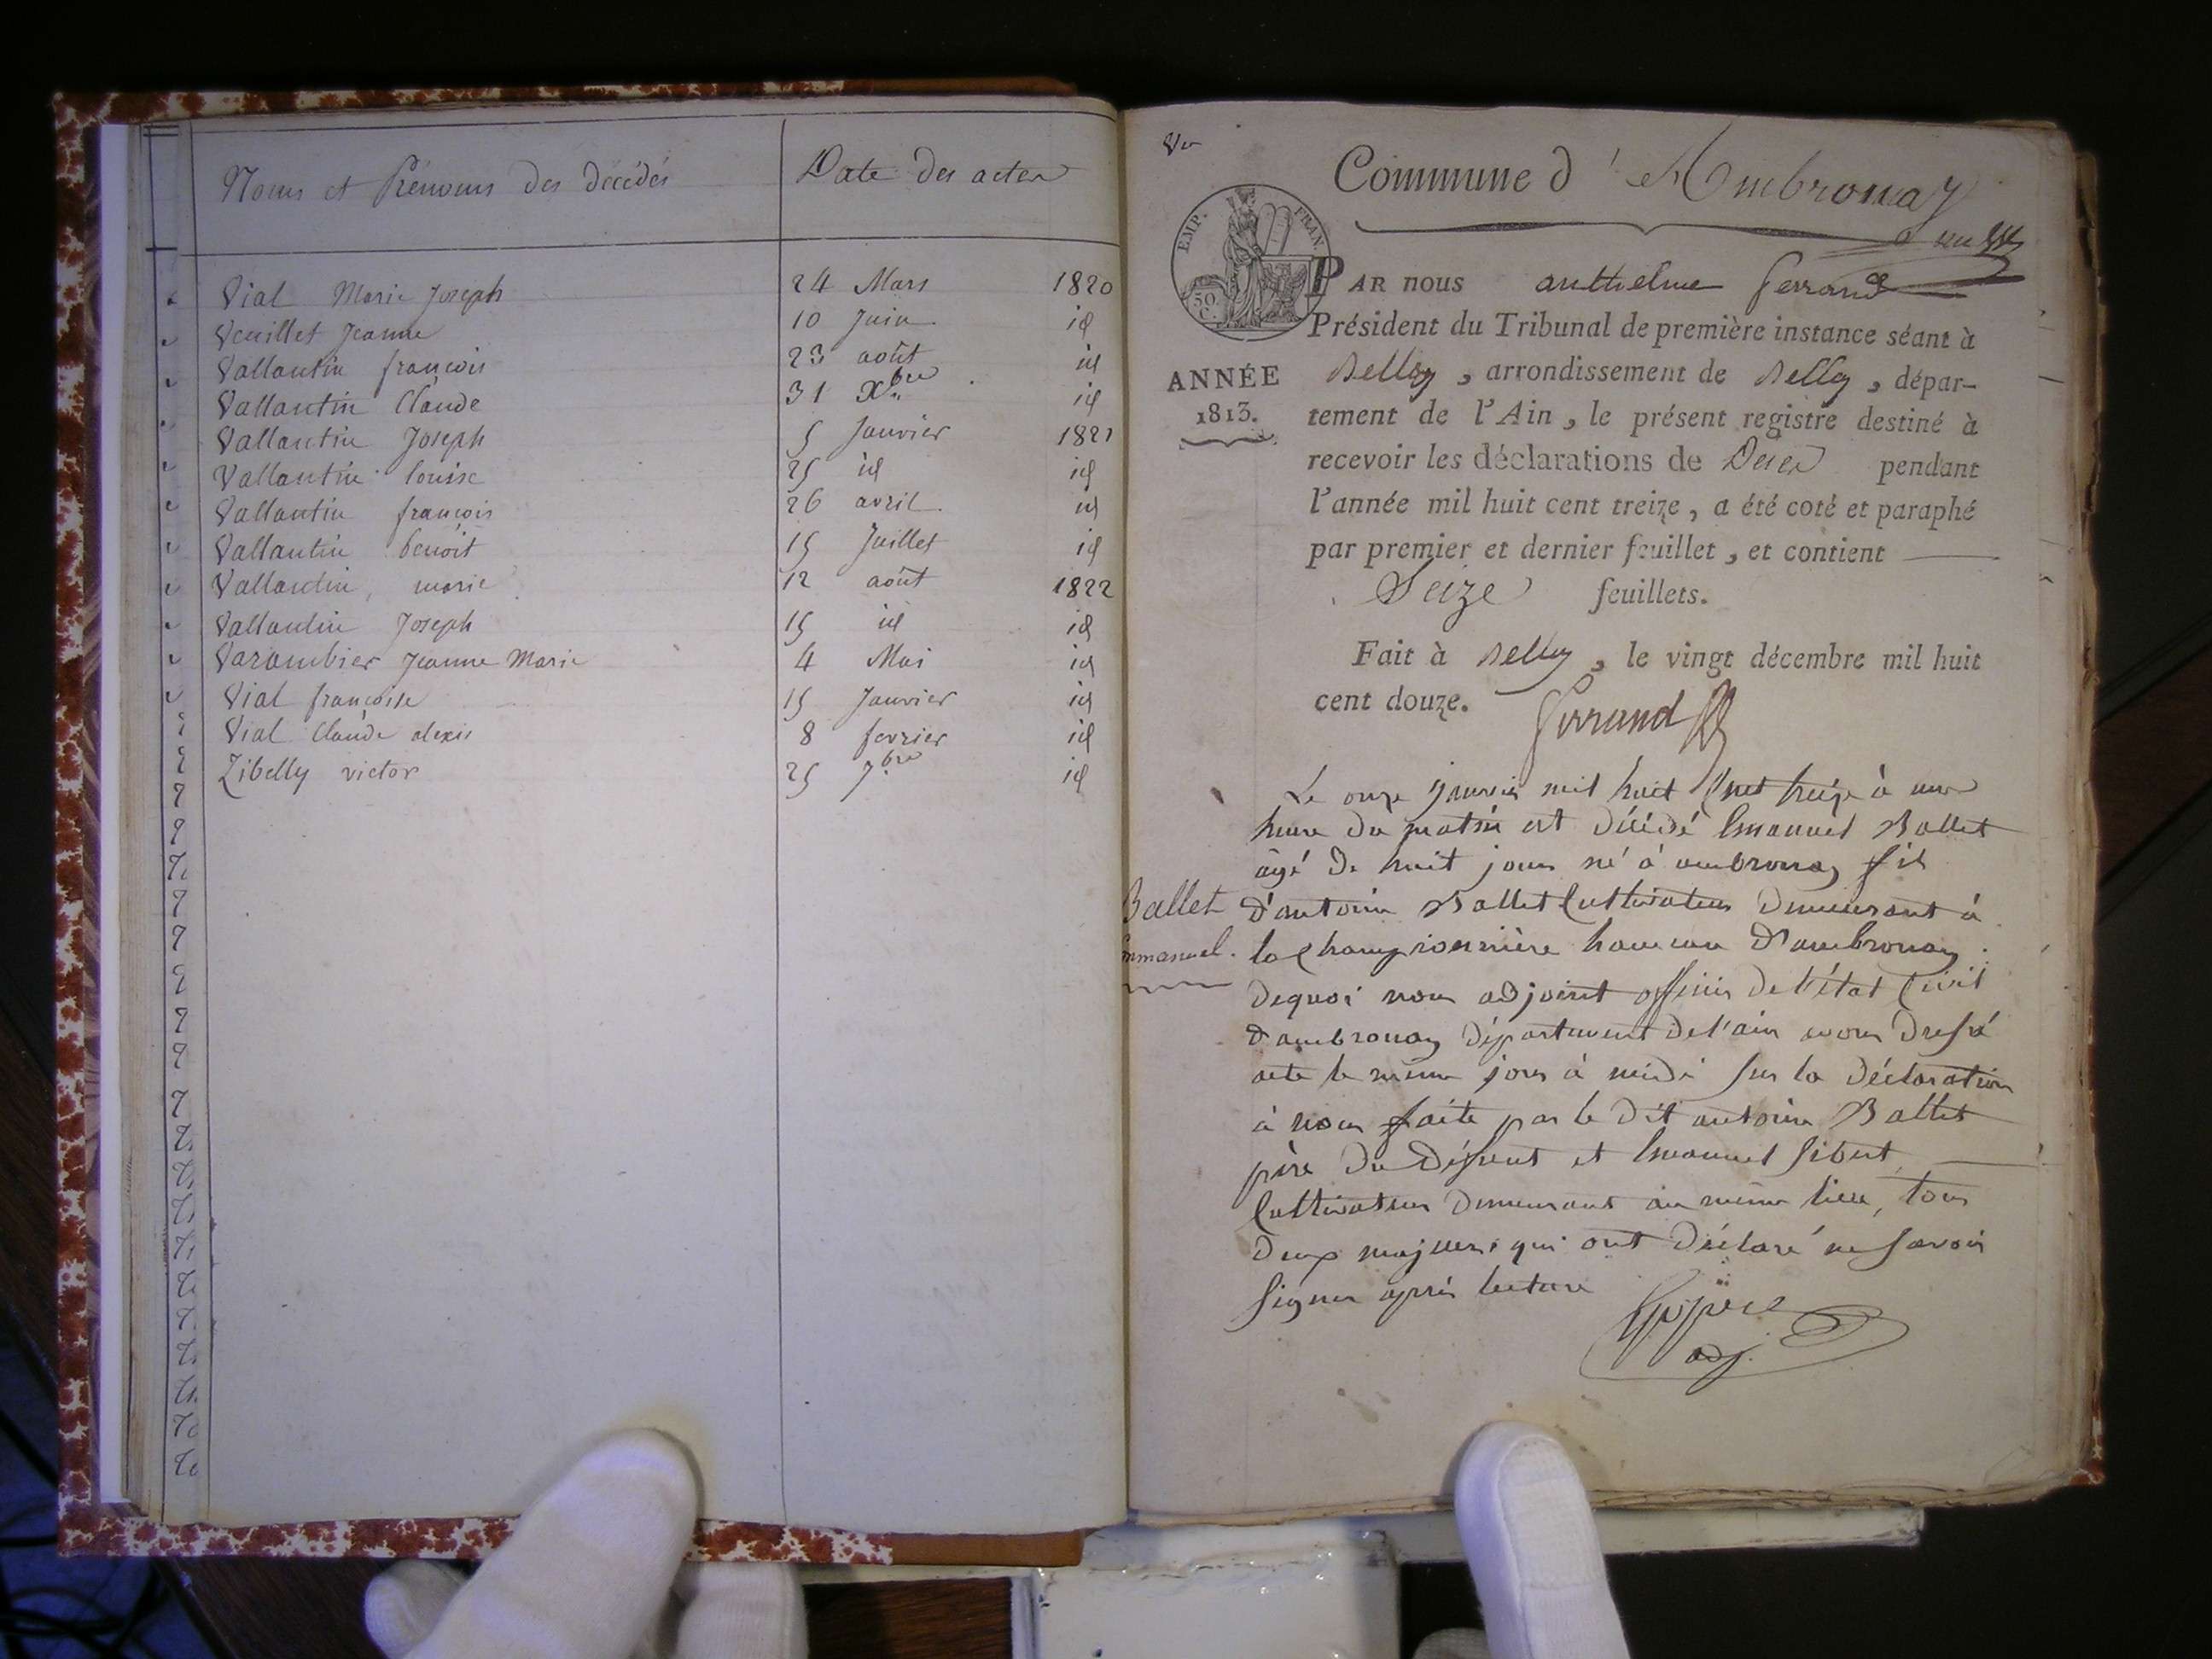 Noms et Prénoms des décédés
Date des actes
Vial Marie Joseph 24 Mars 1820
Veuillet Jeanne 10 Juin id
Vallantin françois 23 août id
Vallantin Claude 31 Xbre id
Vallantin Joseph 5 Janvier 1821
Vallantin louise 25 id id
Vallantin françois 26 avril id
Vallantin benoît 15 Juillet id
Vallantin, marie 12 août 1822
Vallantin Joseph 15 id id
Varambier Jeanne Marie 4 Mai id
Vial françoise 15 Janvier id
Vial Claude alexis 8 fevrier id
Zibelly victor 25 7bre id
Commune d'Ambronay
EMP. FRAN.
50. C.
ANNÉE
1813.
PAR nous anthelme ferrand
Président du Tribunal de première instance séant à
Belley, arrondissement de Belley, dépar-
tement de l'Ain, le présent registre destiné à
recevoir les déclarations de Deces pendant
l'année mil huit cent treize, a été coté et paraphé
par premier et dernier feuillet, et contient
Seize feuillets.
Fait à Belley, le vingt décembre mil huit
cent douze.
Ferrand
Ballet
Emmanuel.
Le onze janvier mil huit Cent treize à une
heure du matin est décédé Emanuel Ballet
âgé de huit jours né à ambronay fils
d'antoine Ballet Cultivateur demeurant à
la Championnière hameau d'ambronay.
dequoi nous adjoint officier de l'état Civil
d'ambronay département de l'ain avons dressé
acte le même jour à midi sur la déclaration
à nous faite par le dit antoine Ballet
père du défunt et Emanuel Sibert
Cultivateur demeurant au même lieu, tous
deux majeurs qui ont déclaré ne savoir
signer après lecture
adj.